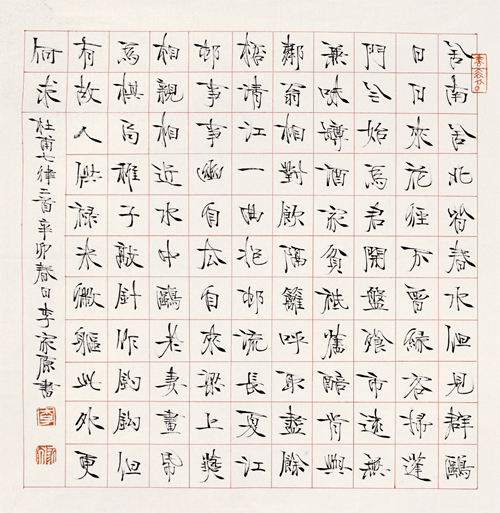 舍南舍北皆春水但見群鷗
日日來花徑不曾緣客掃蓬
門今始為君開盤飧市遠無
兼味樽酒家貧秪舊醅肯與
鄰翁相對飲隔籬呼取盡餘
桮清江一曲抱邨流長夏江
邨事事幽自去自來梁上燕
相親相近水中鷗老妻畫帋
為棋局稚子敲針作釣鉤但
有故人供祿米微軀此外更
何求
杜甫七律二首辛卯春日李家原書